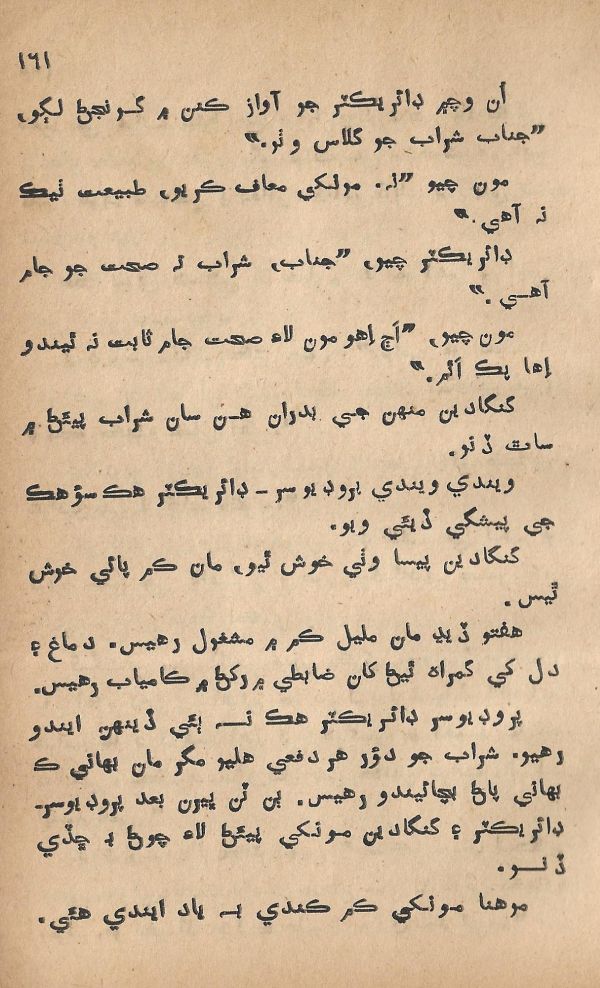 ١٦١
اُن وچ۾ ڊائريڪٽر جو آواز ڪنن ۾ گونجڻ لڳو،
”جناب شراب جو گلاس وٺو.“
مون چيو ”نہ. مونکي معاف ڪريو، طبيعت ٺيڪ
نہ آهي.“
ڊائريڪٽر چيو، ”جناب، شراب تہ صحت جو جام
آهي.“
مون چيو، ”اَڄ اِهو مون لاءِ صحت جام ثابت نہ ٿيندو
اِها پڪ اَٿم.“
گنگادين منهن جي بدران هن سان شراب پيئڻ ۾
ساٿ ڏنو.
ويندي ويندي پروڊيوسر - ڊائريڪٽر هڪ سؤ هڪ
جي پيشگي ڏيئي ويو.
گنگادين پيسا وٺي خوش ٿيو، مان ڪم پائي خوش
ٿيس.
هفتو ڏيڍ مان مليل ڪم ۾ مشغول رهيس. دماغ ۽
دل کي گمراهه ٿيڻ کان ضابطي ۾ رکڻ ۾ ڪامياب رهيس.
پروڊيوسر ڊائريڪٽر هڪ نہ ٻئي ڏينهن ايندو
رهيو. شراب جو دؤر هر دفعي هليو مگر مان بهاني ڪ
بهاني پاڻ بچائيندو رهيس. ٻن ٽن ڀيرن بعد پروڊيوسر-
ڊائريڪٽر ۽ گنگادين مونکي پيئڻ لاءِ چوڻ بہ ڇڏي
ڏنو.
موهنا مونکي ڪم ڪندي بہ ياد ايندي هئي.